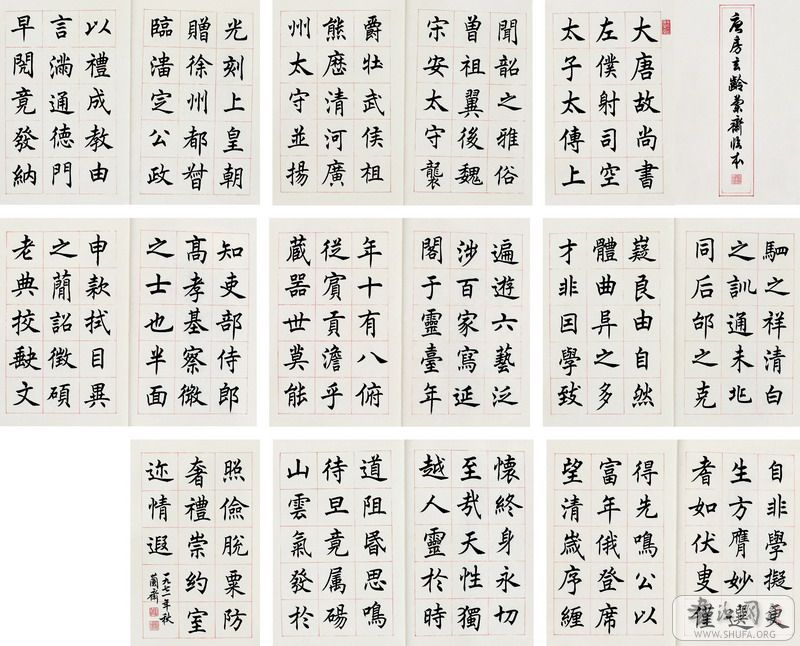 唐房玄齡蘭齋臨本
大唐故尚書
左僕射司空
太子太傅上
聞韶之雅俗
曾祖翼後魏
宋安太守襲
爵壮武侯祖
熊歷清河廣
州太守並揚
光刻上皇朝
贈徐州都督
臨淄定公政
以禮成教由
言滿通德門
早閱竟發納
駟之祥清白
之訓通未兆
同后邰之克
嶷良由自然
體曲异之多
才非因學致
遍遊六藝泛
涉百家寫延
閣于靈臺年
年十有八俯
從賓貢澹乎
蔵器世莫能
知吏部侍郎
高孝基察微
之士也半面
申款拭目異
之蕳詔徵碩
老典挍缺文
自非學擬更
生方膺妙選
耆如伏叟
得先鳴公以
富年俄登席
望清歲序纏
懷終身永切
至哉天性獨
越人靈於時
道阻昏思鳴
待旦竟属碭
山雲氣發於
照儉脫粟防
奢禮崇約室
迩情遐
一九七一年秋
蘭齋
WWW.SHUFA.ORG